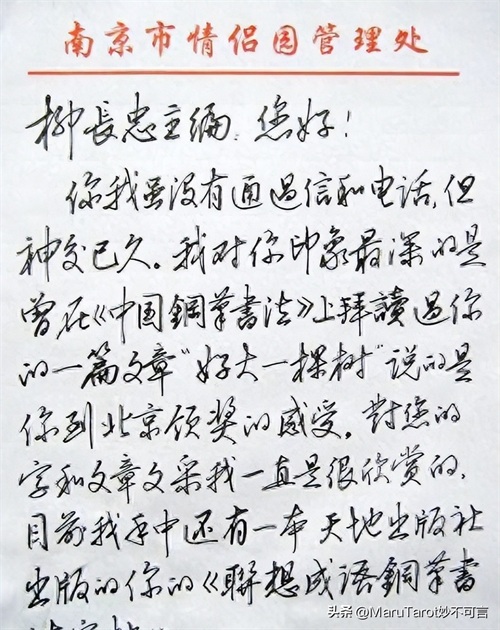 南京市情侣园管理处
柳長忠主编：您好！
你我虽没有通過信和电话，但
神交已久。我对你印象最深的是
曾在《中国鋼筆書法》上拜讀過你
的一篇文章“好大一棵树”说的是
你到北京领奖的感受。對您的
字和文章文采我一直是很欣赏的，
目前我手中还有一本天地出版社
出版的你的《聯想成语鋼筆書
头条 @MaruTarot妙不可言